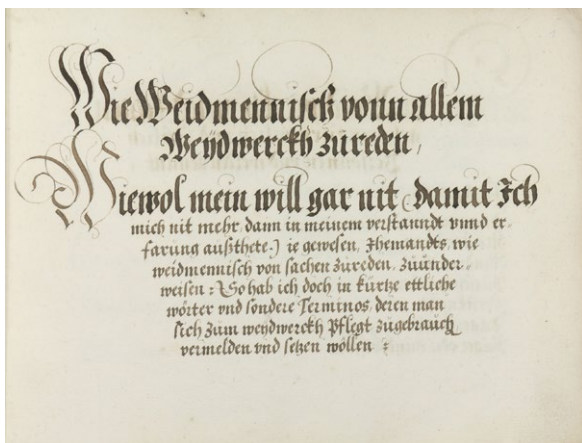 Wie Weidmennisch vonn allem
Weydwerckh zureden,
Wiewol mein will gar nit (damit Ich
mich nit mehr dann in meinem verstanndt vnnd er-
farung außthete.) ie gewesen, Ihemandts, wie
weidmennisch von sachen zureden, zuünder-
weisen: So hab ich doch in kürtze ettliche
wörter vnd sondere Terminos, deren man
sich zum weydwerckh Pflegt zugebrauch
vermelden vnd setzen wöllen: